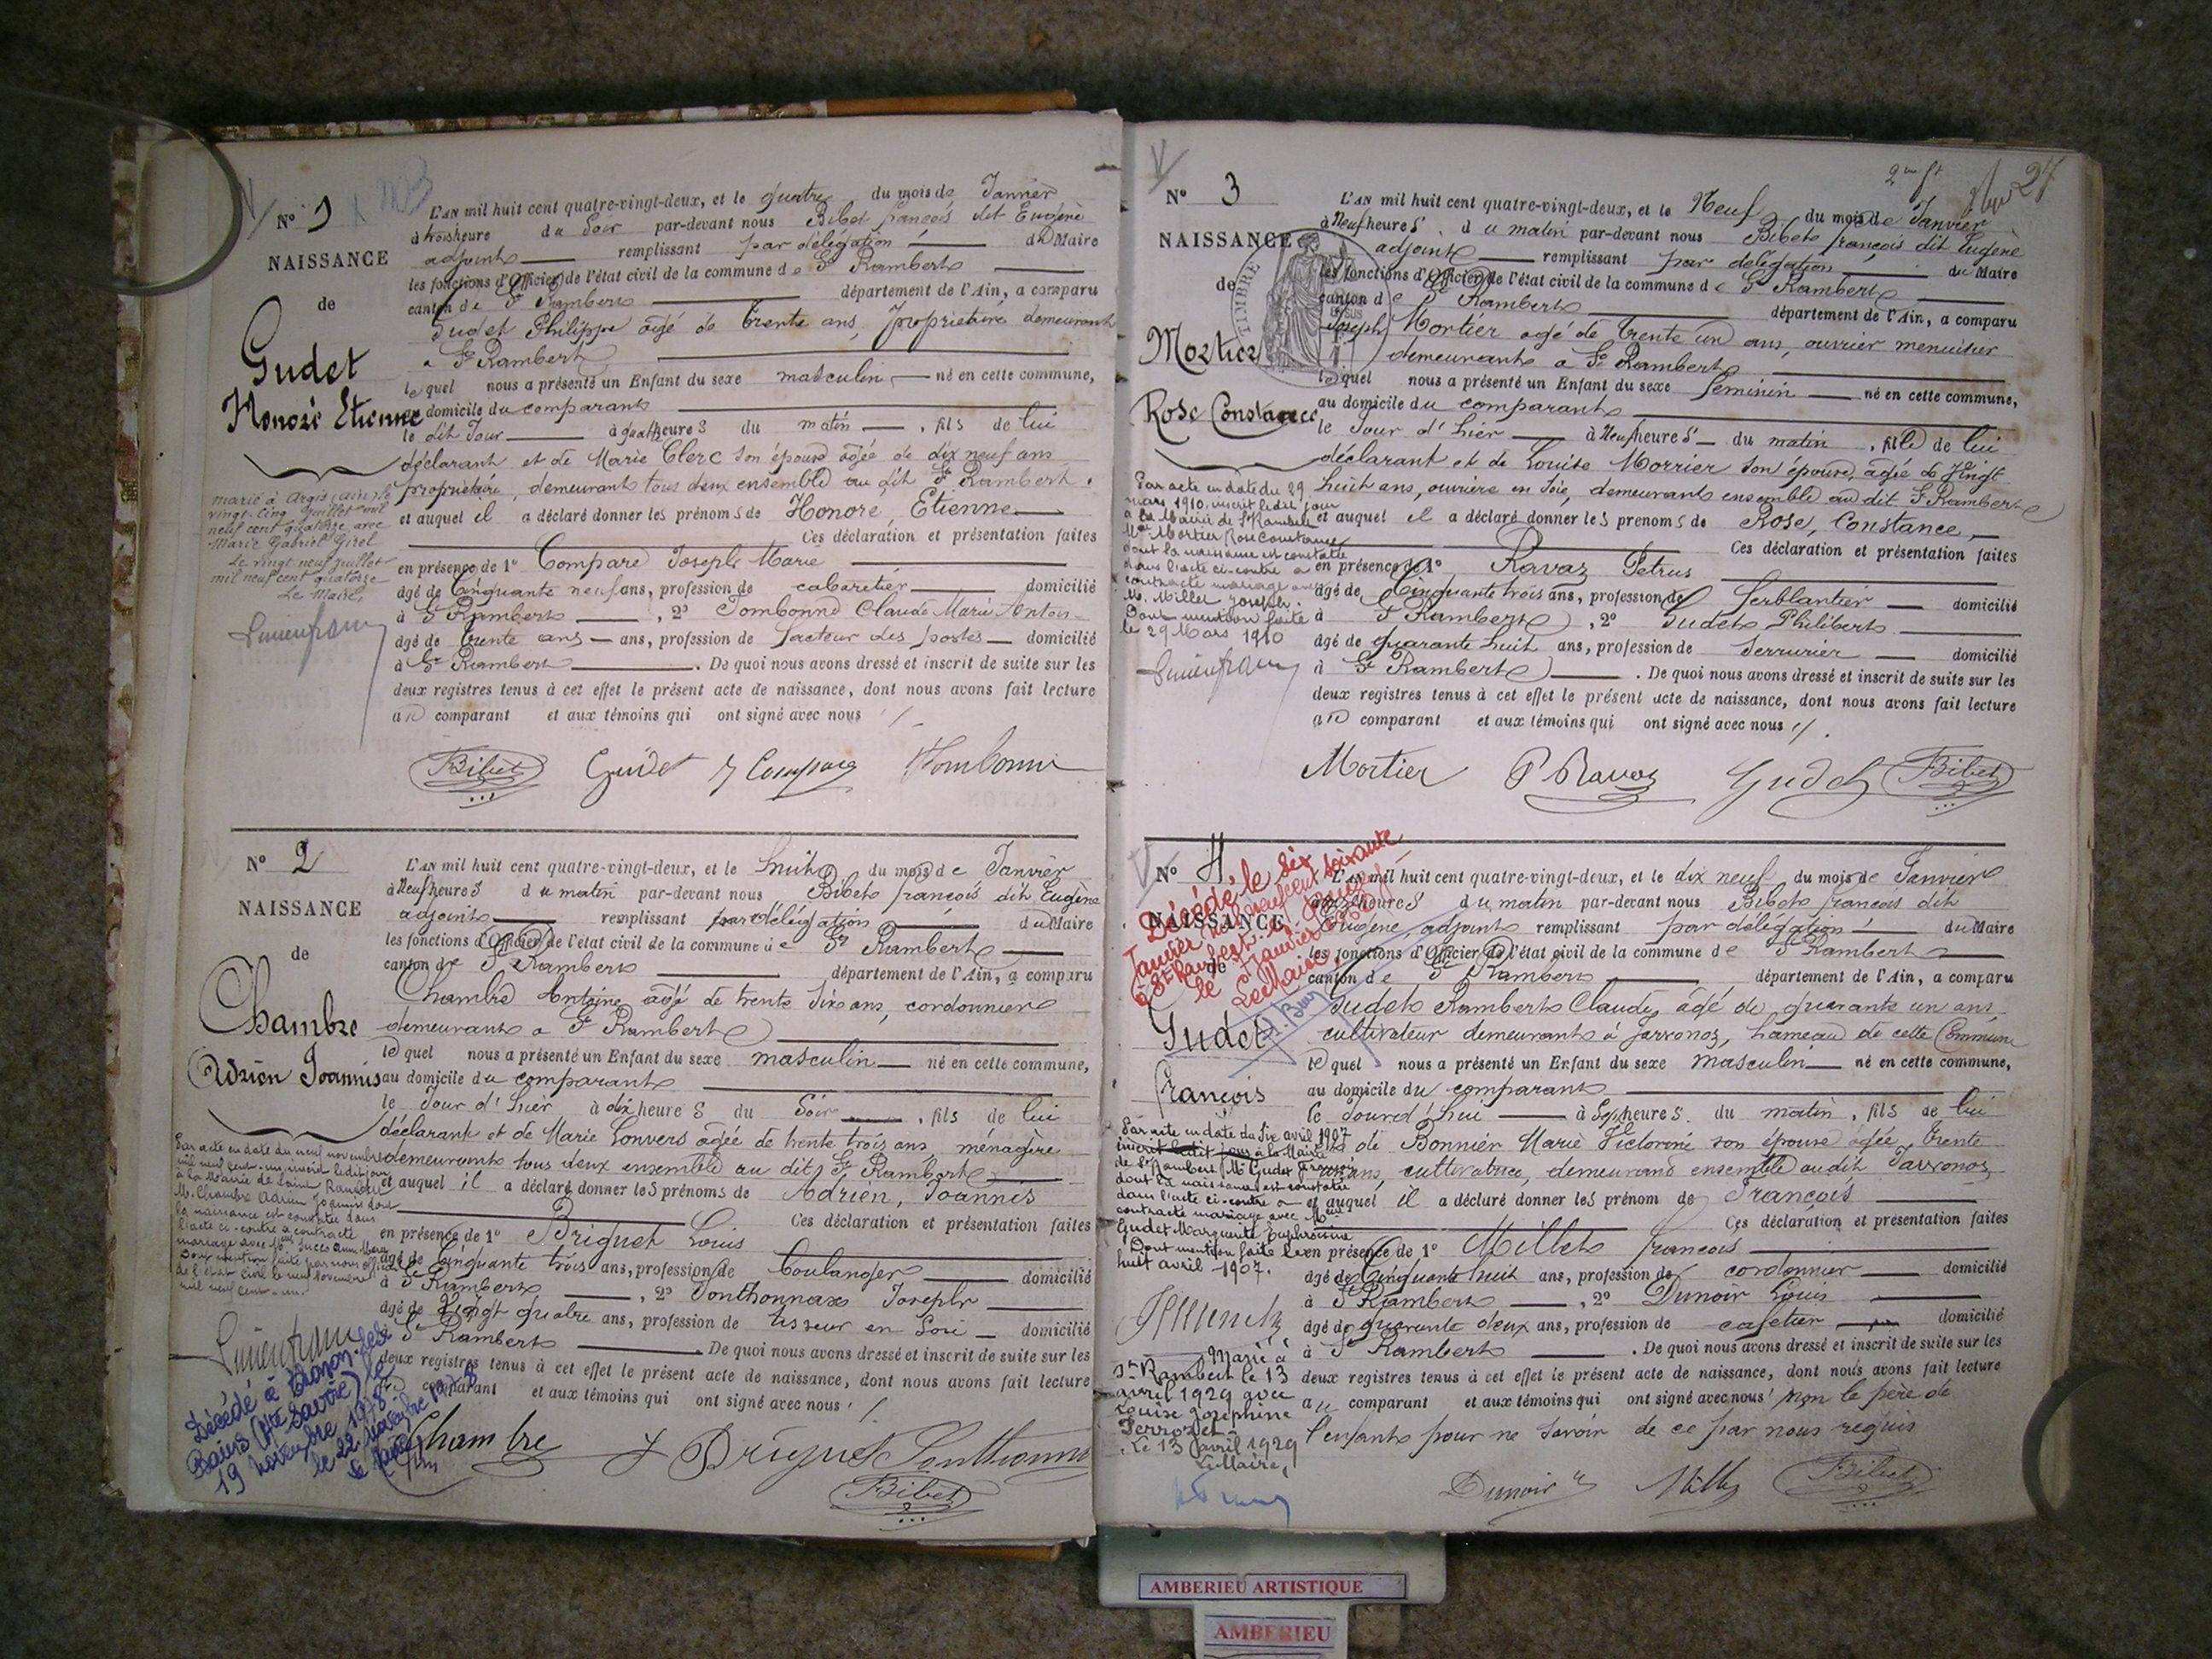 N° 1
NAISSANCE
de
Gudet
Honoré Etienne
marié à Argis (Ain) le
vingt-cinq Juillet mil
neuf cent quatorze avec
Marie Gabriel Girel
Le vingt neuf Juillet
mil neuf cent quatorze
Le Maire,
L'AN mil huit cent quatre-vingt-deux, et le quatre du mois de Janvier
à trois heure du Soir par-devant nous Bibet françois dit Eugène
adjoint remplissant par délégation du Maire
les fonctions d'Officier de l'état civil de la commune de St Rambert
canton de St Rambert département de l'Ain, a comparu
Gudet Philippe âgé de trente ans, propriétaire demeurant
a St Rambert
lequel nous a présenté un Enfant du sexe masculin né en cette commune,
au domicile du comparant
le dit Jour à quatre heures du matin, fils de lui
déclarant et de Marie Clerc son épouse âgée de dix neuf ans
propriétaire, demeurant tous deux ensemble au dit St Rambert.
et auquel il a déclaré donner les prénoms de Honoré, Etienne
Ces déclaration et présentation faites
en présence de 1° Compare Joseph Marie
âgé de Cinquante neuf ans, profession de cabaretier domicilié
à St Rambert, 2° Tombonne Claude Marie Anton
âgé de trente ans ans, profession de facteur des postes domicilié
à St Rambert. De quoi nous avons dressé et inscrit de suite sur les
deux registres tenus à cet effet le présent acte de naissance, dont nous avons fait lecture
au comparant et aux témoins qui ont signé avec nous
Bibet Gudet J Compare
N° 2
NAISSANCE
de
Chambre
Adrien Joannis
Par acte en date du neuf novembre
mil neuf cent un, inscrit ledit jour
à la Mairie de Saint Rambert
M. Chambre Adrien Joannis dont
la naissance est constatée dans
l'acte ci-contre a contracté
mariage avec Mlle
Dont mention faite par nous officier
de l'état civil le neuf Novembre
mil neuf cent un.
Décédé à Thonon-les-
Bains (Hte Savoie) le
19 novembre 1978
le 22 novembre 1978
Le Maire
L'AN mil huit cent quatre-vingt-deux, et le huit du mois de Janvier
à Neuf heures du matin par-devant nous Bibet françois dit Eugène
adjoint remplissant par délégation du Maire
les fonctions d'Officier de l'état civil de la commune de St Rambert
canton de St Rambert département de l'Ain, a comparu
Chambre Antoine âgé de trente six ans, cordonnier
demeurant a St Rambert
lequel nous a présenté un Enfant du sexe masculin né en cette commune,
au domicile du comparant
le Jour d'hier à dix heures du Soir, fils de lui
déclarant et de Marie Convers âgée de trente trois ans, ménagère
demeurant tous deux ensemble au dit St Rambert
et auquel il a déclaré donner les prénoms de Adrien, Joannis
Ces déclaration et présentation faites
en présence de 1° Briguet Louis
âgé de Cinquante trois ans, profession de boulanger domicilié
à St Rambert, 2° Ponthonnax Joseph
âgé de Vingt quatre ans, profession de tisseur en Soie domicilié
à St Rambert. De quoi nous avons dressé et inscrit de suite sur les
deux registres tenus à cet effet le présent acte de naissance, dont nous avons fait lecture
au comparant et aux témoins qui ont signé avec nous
Chambre Briguet
Bibet
27
N° 3
NAISSANCE
de
TIMBRE
Mortier
Rose Constance
Par acte en date du 29
mars 1910, inscrit ledit jour
à la Mairie de St Rambert
Mlle Mortier Rose Constance
dont la naissance est constatée
dans l'acte ci-contre a
contracté mariage avec
M. Millet Joseph.
Dont mention faite
le 29 Mars 1910
L'AN mil huit cent quatre-vingt-deux, et le Neuf du mois de Janvier
à Neuf heures du matin par-devant nous Bibet françois dit Eugène
adjoint remplissant par délégation du Maire
les fonctions d'Officier de l'état civil de la commune de St Rambert
canton de St Rambert département de l'Ain, a comparu
Joseph Mortier âgé de trente un ans, ouvrier menuisier
demeurant a St Rambert
lequel nous a présenté un Enfant du sexe féminin né en cette commune,
au domicile du comparant
le Jour d'hier à Neuf heures du matin, fille de lui
déclarant et de Louise Morrier son épouse, âgée de Vingt
huit ans, ouvrière en Soie, demeurant ensemble au dit St Rambert
et auquel il a déclaré donner les prénoms de Rose, Constance,
Ces déclaration et présentation faites
en présence de 1° Ravaz Petrus
âgé de Cinquante trois ans, profession de ferblantier domicilié
à St Rambert, 2° Gudet Philibert
âgé de quarante huit ans, profession de Serrurier domicilié
à St Rambert. De quoi nous avons dressé et inscrit de suite sur les
deux registres tenus à cet effet le présent acte de naissance, dont nous avons fait lecture
au comparant et aux témoins qui ont signé avec nous
Mortier P Ravaz Gudet Bibet
N° 4
NAISSANCE
de
Gudet
François
Décédé le six
Janvier neuf cent soixante
à St Rambert
le Janvier
Le Maire
Par acte en date du Six avril 1907
inscrit ledit jour à la Mairie
de St Rambert, Mr Gudet François
dont la naissance est constatée
dans l'acte ci-contre a
contracté mariage avec Mlle
Gudet Marguerite Euphrosine
Dont mention faite le
huit avril 1907.
Marié à
St Rambert le 13
avril 1929 avec
Louise Joséphine
Le 13 avril 1929
Le Maire,
L'AN mil huit cent quatre-vingt-deux, et le dix neuf du mois de Janvier
heures du matin par-devant nous Bibet françois dit
Eugène adjoint remplissant par délégation du Maire
les fonctions d'Officier de l'état civil de la commune de St Rambert
canton de St Rambert département de l'Ain, a comparu
Gudet Rambert Claude, âgé de quarante un ans
cultivateur demeurant à Javronoz, hameau de cette Commune
lequel nous a présenté un Enfant du sexe masculin né en cette commune,
au domicile du comparant
le Jourd'hui à Sept heures du matin, fils de lui
et de Bonnier Marie Victorine son épouse âgée trente
ans, cultivatrice, demeurant ensemble audit Javronoz
et auquel il a déclaré donner les prénom de François
Ces déclaration et présentation faites
en présence de 1° Millet françois
âgé de Cinquante huit ans, profession de cordonnier domicilié
à St Rambert, 2° Dunoir Louis
âgé de quarante deux ans, profession de cafetier domicilié
à St Rambert. De quoi nous avons dressé et inscrit de suite sur les
deux registres tenus à cet effet le présent acte de naissance, dont nous avons fait lecture
au comparant et aux témoins qui ont signé avec nous non le père de
l'enfant pour ne savoir de ce par nous requis
Dunoir Millet Bibet
AMBERIEU ARTISTIQUE
AMBERIEU